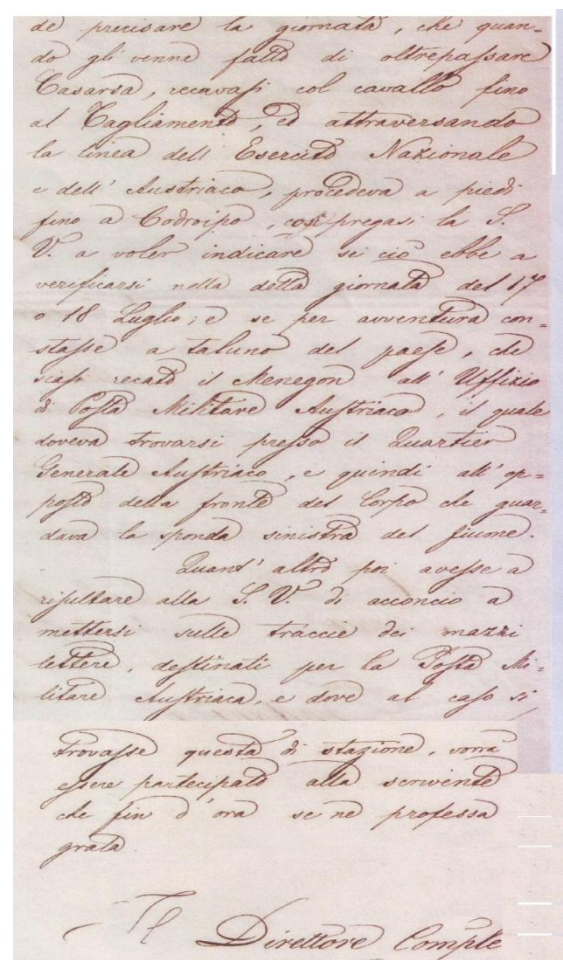 de precisare la giornata, che quan=
do gli venne fatto di oltrepassare
Casarsa, recavasi col cavallo fino
al Tagliamento, ed attraversando
la linea dell' Esercito Nazionale
e dell' Austriaco, procedeva a piedi
fino a Codroipo, così pregasi la S.
V. a voler indicare se ciò ebbe a
verificarsi nella detta giornata del 17
o 18 Luglio; e se per avventura con=
stasse a taluno del paese, che
siasi recato il Menegon all' Uffizio
di Posta Militare Austriaco, il quale
doveva trovarsi presso il Quartier
Generale Austriaco, e quindi all' op=
posto della fronte del Corpo che guar=
dava la sponda sinistra del fiume.
Quant' altro poi avesse a
risultare alla S. V. di acconcio a
mettersi sulle traccie dei mazzi
lettere, destinati per la Posta Mi=
litare Austriaca, e dove al caso si
trovasse questa di stazione, vorrà
essere partecipato alla scrivente
che fin d'ora se ne professa
grata.
Il Direttore Comple